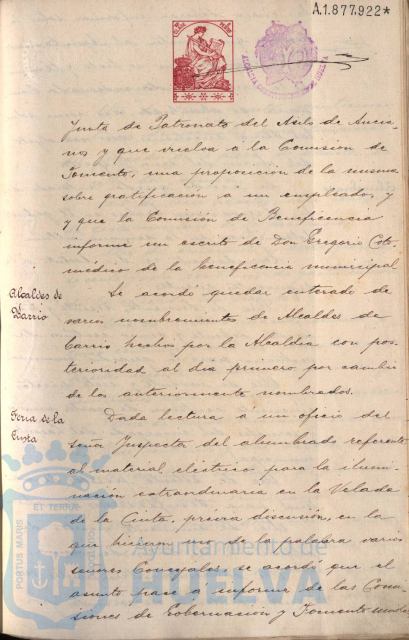 A.1.877.922*
Junta de Patronato del Asilo de Ancia-
nos y que vuelva á la Comisión de
Fomento, una proposición de la misma
sobre gratificación á un empleado, y
y que la Comisión de Beneficencia
informe un escrito de Don Gregorio
médico de la beneficencia municipal
Alcaldes de
Barrio
Se acordó quedar enterado de
varios nombramientos de Alcaldes de
Barrio hechos por la Alcaldia con pos-
terioridad al dia primero por cambio
de los anteriormente nombrados.
Feria de la
Cinta
Dada lectura á un oficio del
señor Inspector del alumbrado referente
al material eléctrico para la ilumi-
nación extraordinaria en la Velada
de la Cinta, previa discusión, en la
que hicieron uso de la palabra varios
señores Concejales, se acordó que el
asunto pase a informe de las Comi-
siones de Gobernación y Fomento
PORTUS MARIS
ET TERRAE
CUSTODIA
Ayuntamiento de
HUELVA